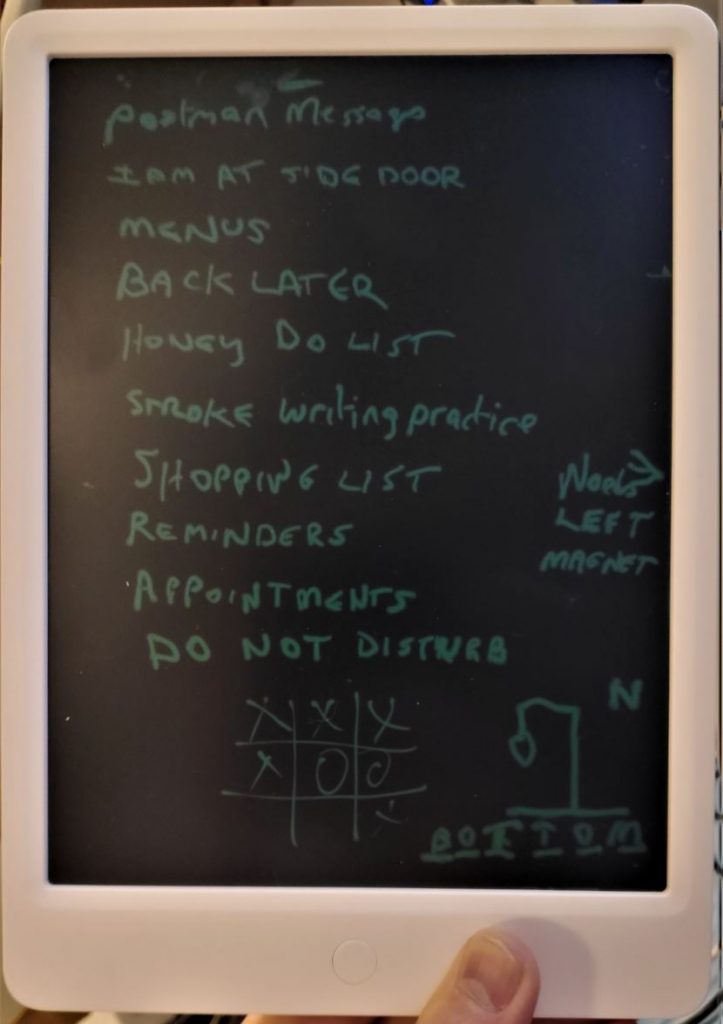 Postman Message
I AM AT SIDE DOOR
MENUS
BACK LATER
HONEY DO LIST
STROKE writing practice
SHOPPING LIST
REMINDERS
APPOINTMENTS
DO NOT DISTURB
LEFT
MAGNET
X X X
X O O
X
N
BOTTOM